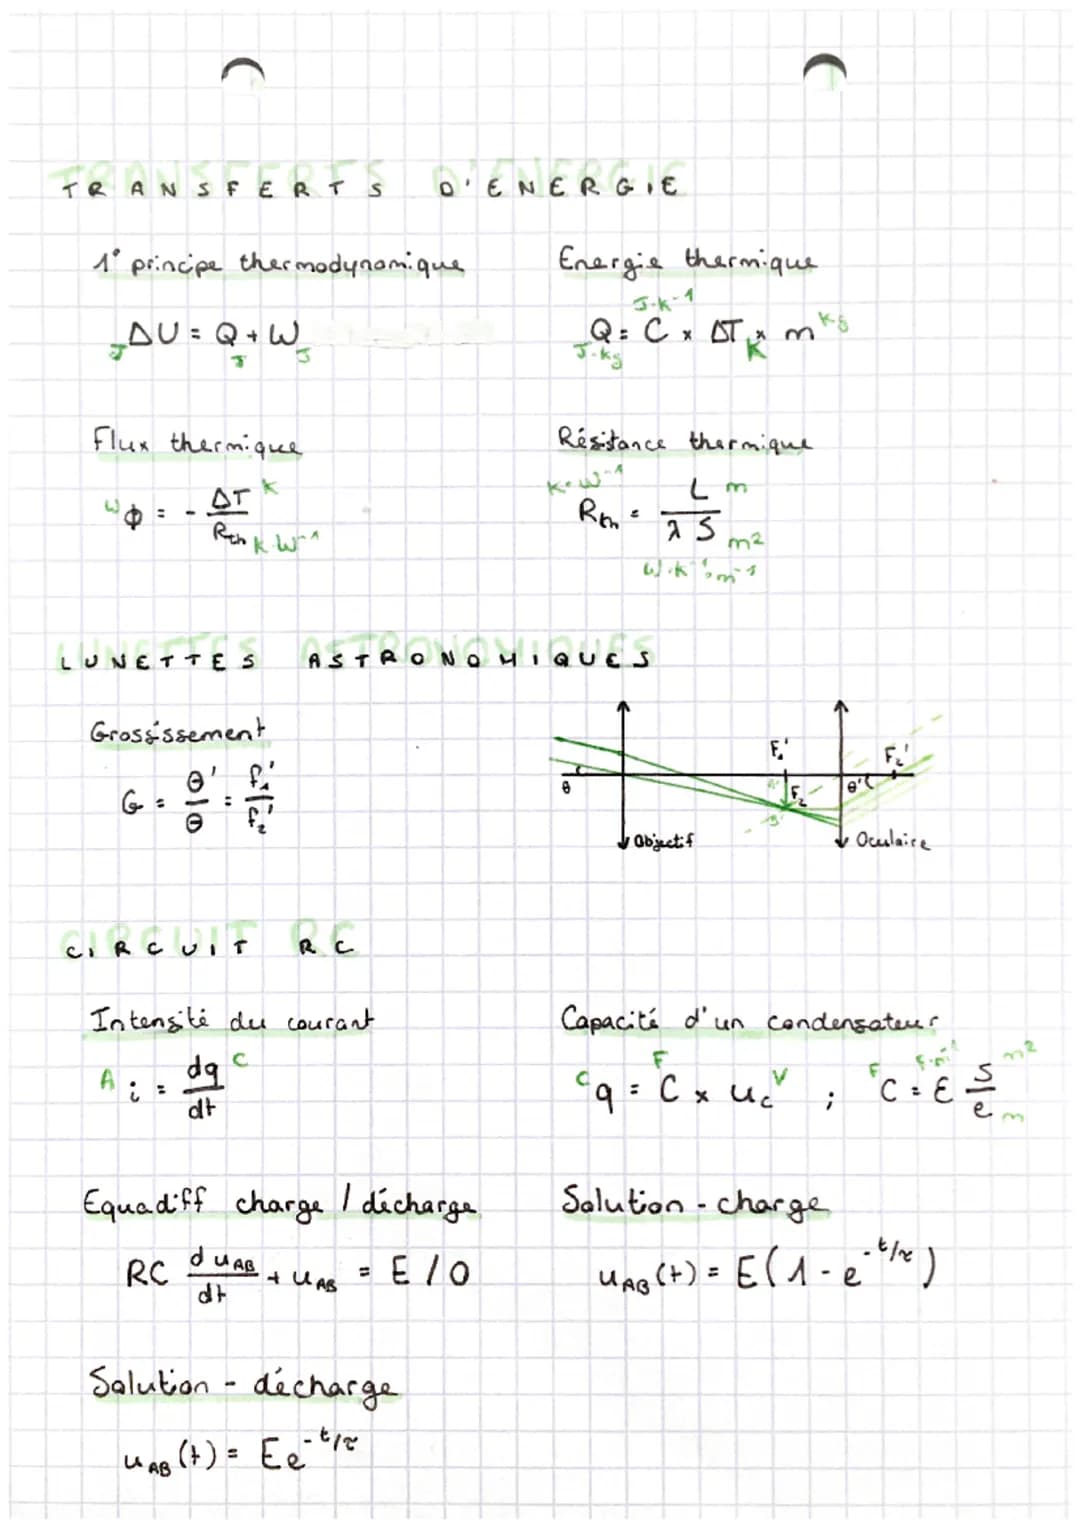 TRANSFERTS D'ENERGIE
1° principe thermodynamique
ΔU = Q + W
J J J
Energie thermique
J·K-1
Q = C x ΔT x m
J·kg K kg
Flux thermique
W Φ = - ΔT/Rth
K K·W-1
Résistance thermique
K·W-1
Rth = L/λS
m m2
W·K-1·m-1
LUNETTES ASTRONOMIQUES
Grossissement
G = θ'/θ = f1'/f2'
θ
Objectif
F1'
F2
θ'
F2'
Oculaire
CIRCUIT RC
Intensité du courant
A i = dq/dt C
Capacité d'un condensateur
C q = C x uc ; C = ε S/e
F V F F·m-1 m2 m
Equadiff charge / décharge
RC duAB/dt + uAB = E / 0
Solution - charge
uAB(t) = E(1 - e-t/τ)
Solution - décharge
uAB(t) = Ee-t/τ